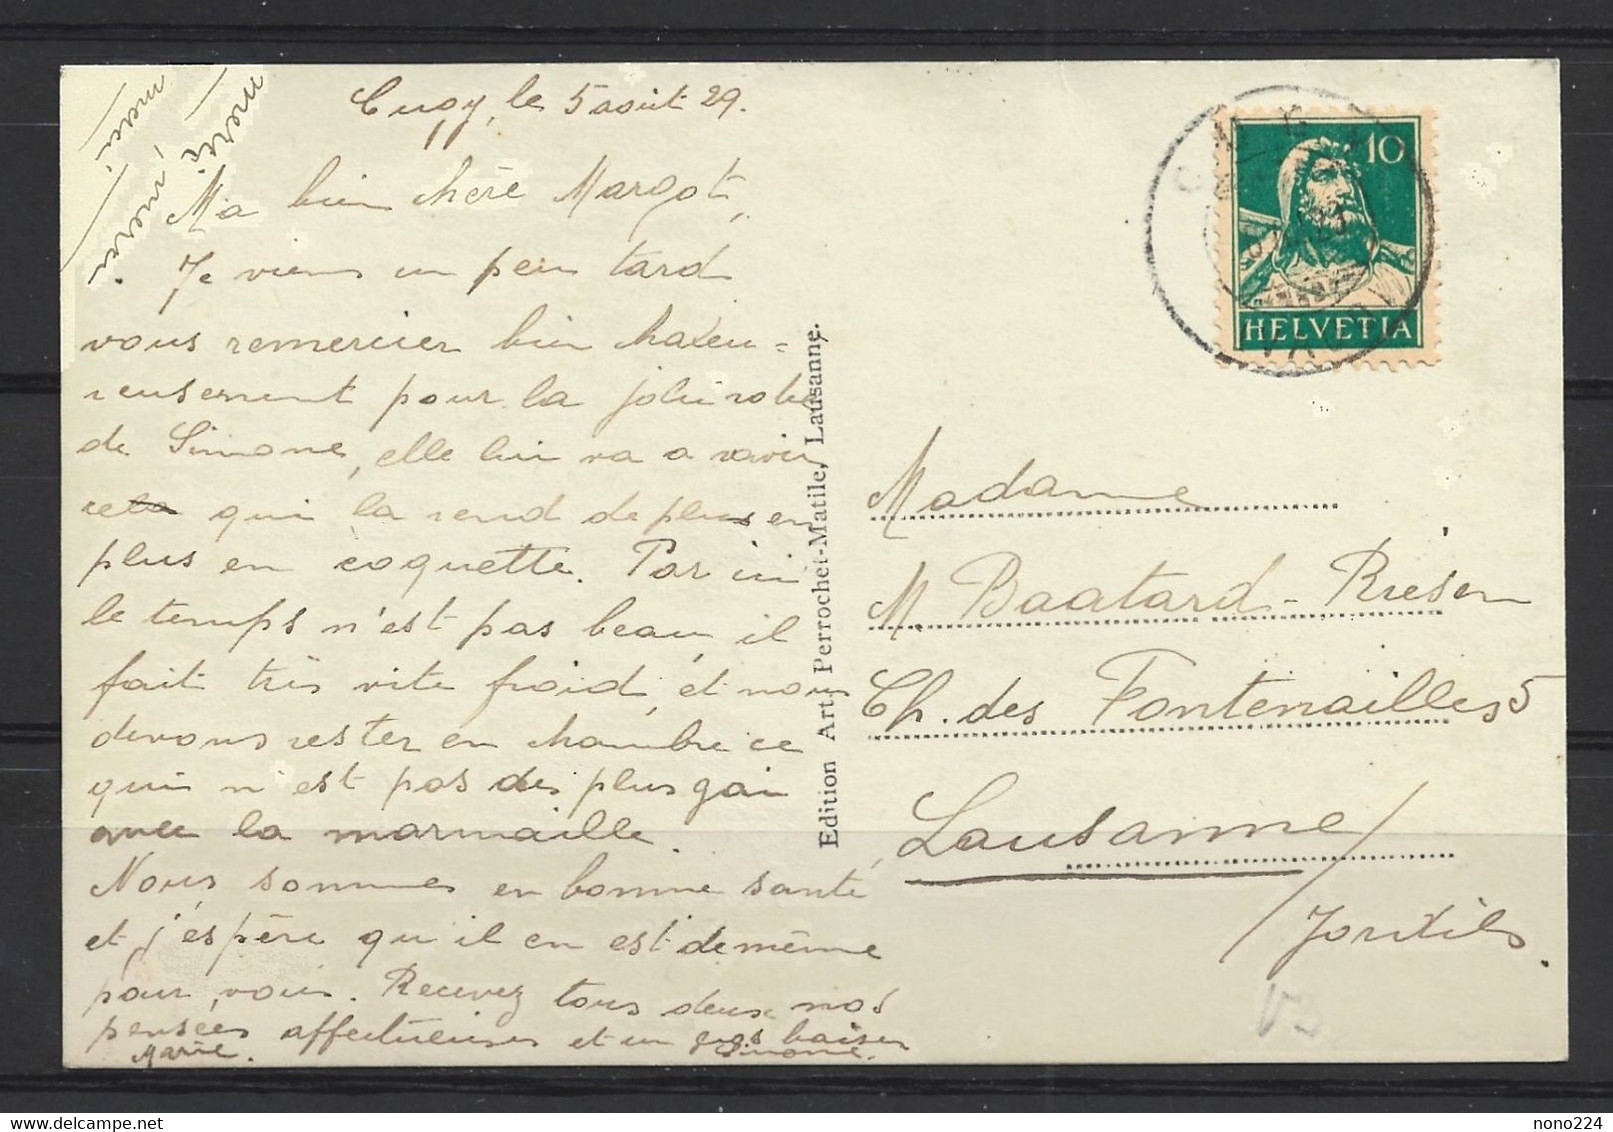 merci merci
merci merci
Cugy, le 5 août 29.
Ma bien chère Margot,
Je viens un peu tard
vous remercier bien chaleu=
reusement pour la jolie robe
de Simone, elle lui va a ravir
qui la rend de plus en
plus en coquette. Par ici
le temps n'est pas beau, il
fait très vite froid, et nous
devons rester en chambre ce
qui n'est pas des plus gai
avec la marmaille.
Nous sommes en bonne santé
et j'espère qu'il en est de même
pour vous. Recevez tous deux nos
pensées affectueuses et un gros baiser
Marie. Simone.
Edition Art. Perrochet-Matile, Lausanne.
10
HELVETIA
Madame
M. Baatard-Riesen
Ch. des Fontenailles 5
Lausanne
/Jordils.
nono224